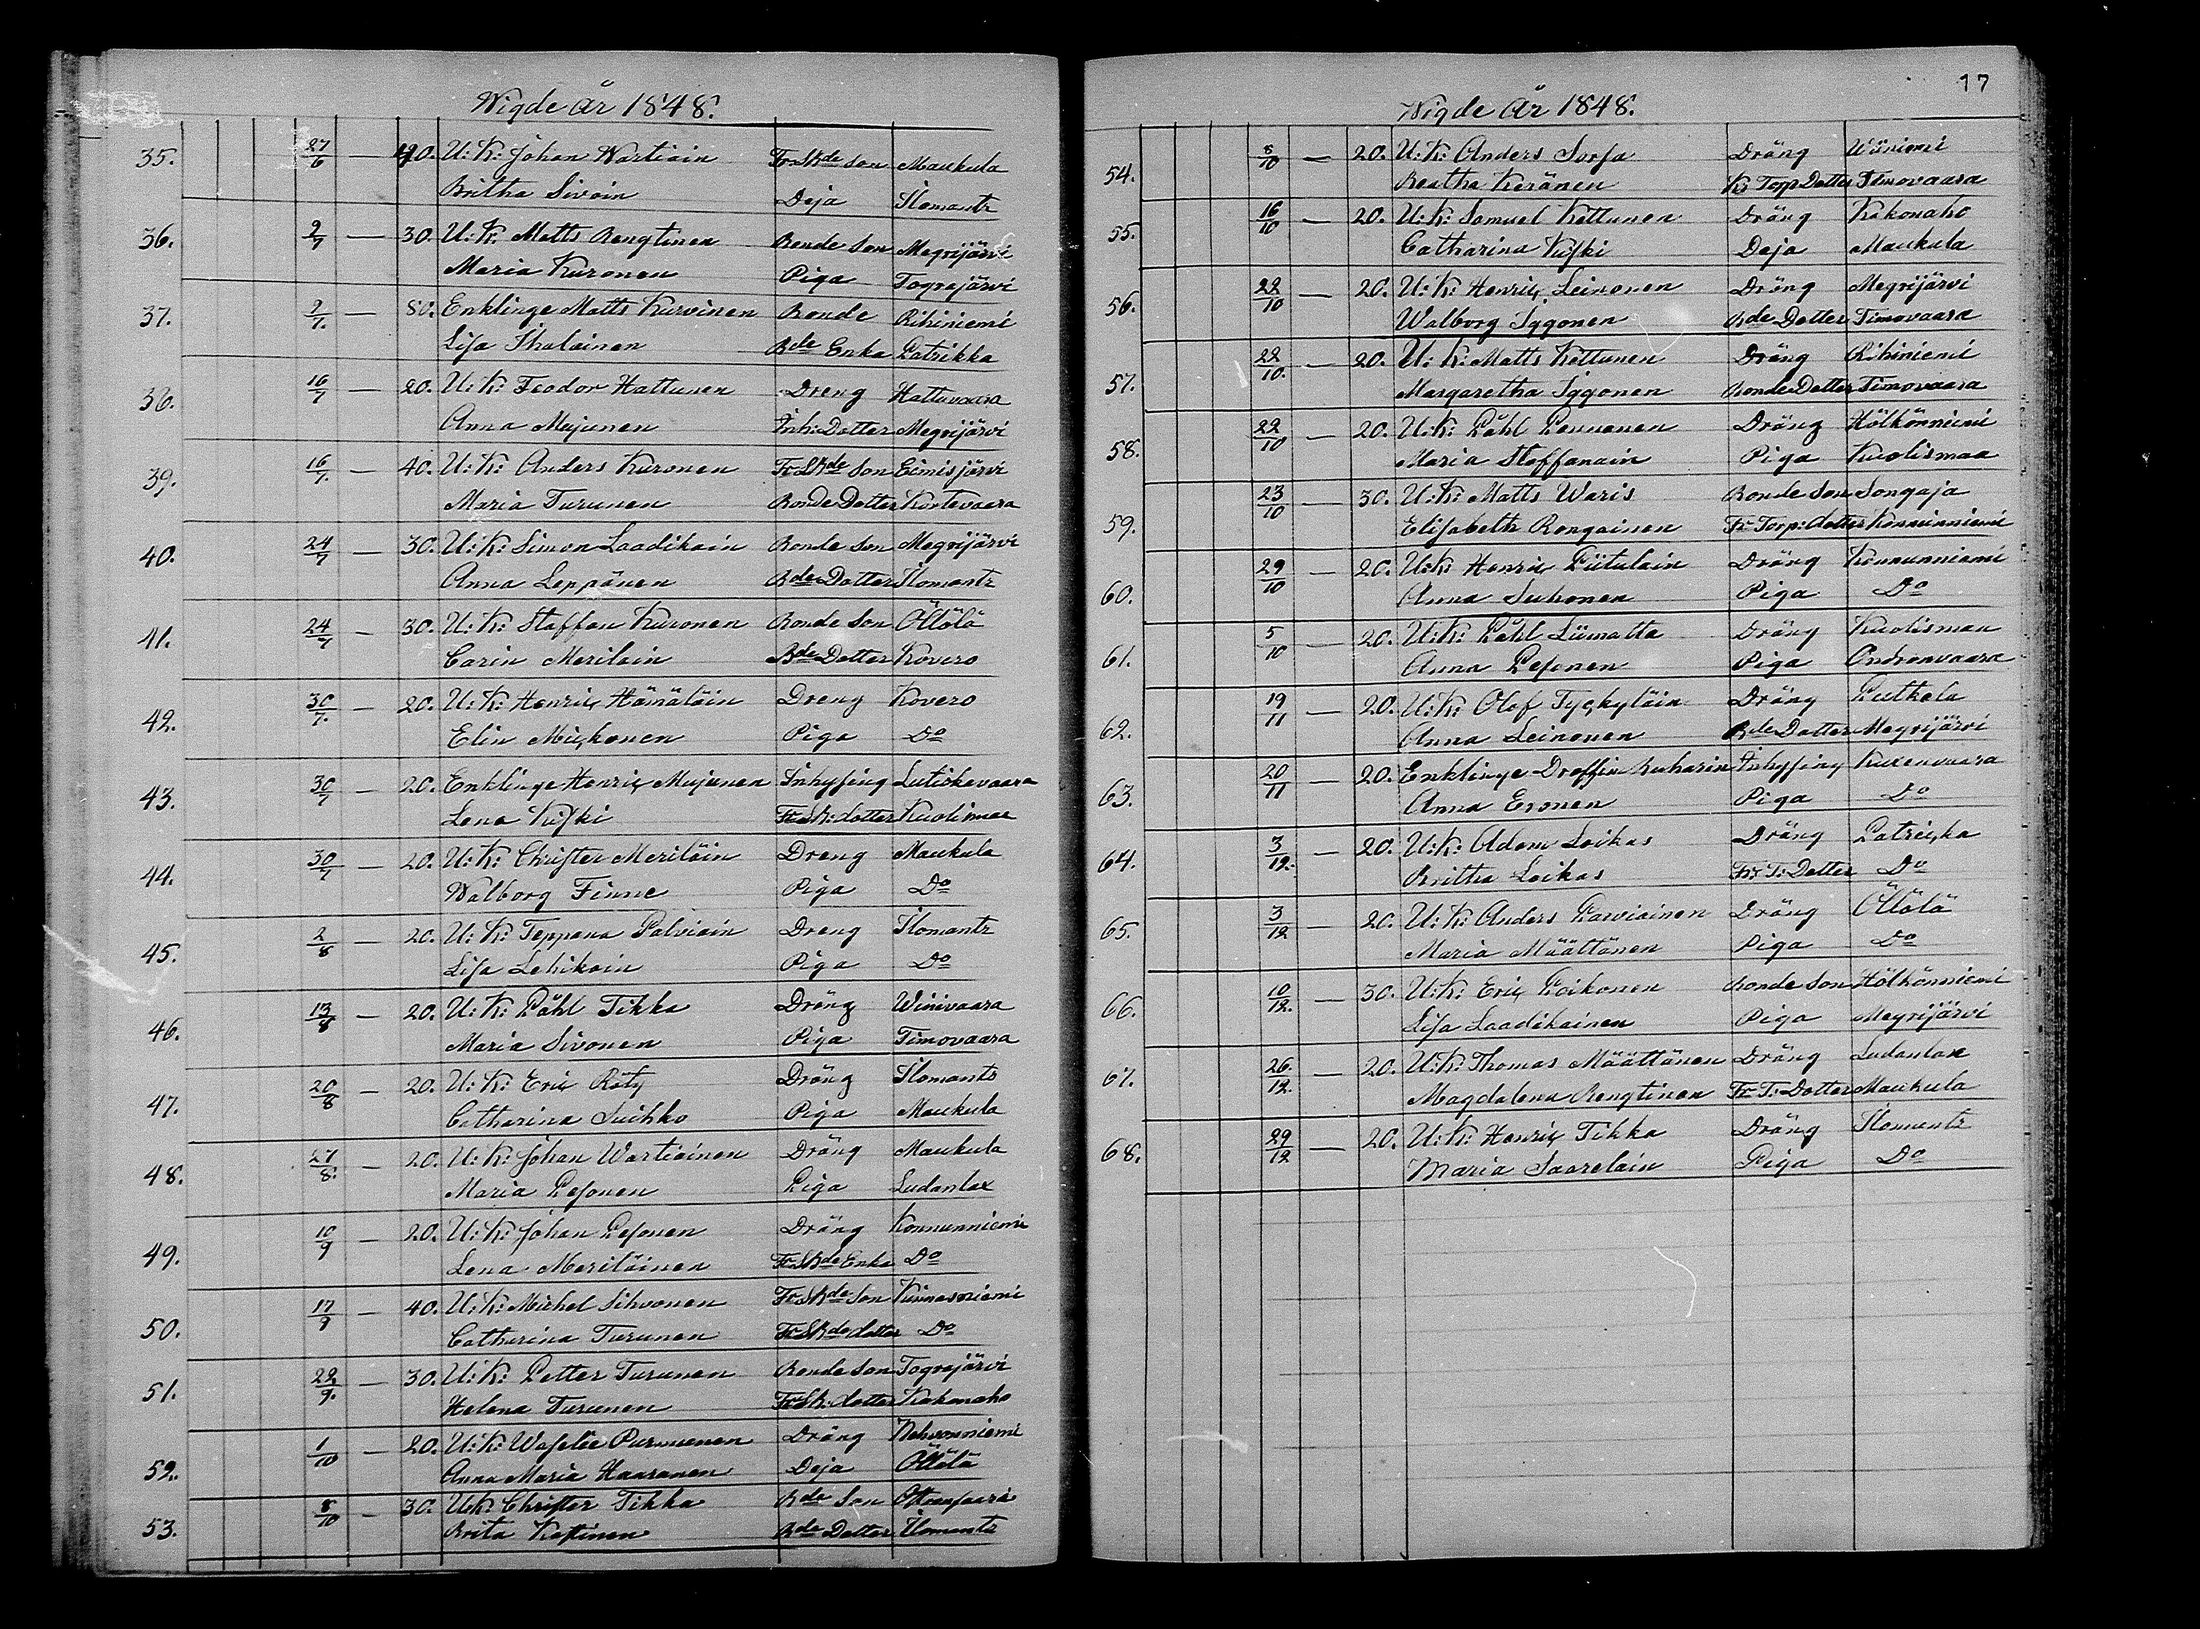 Wigde År 1848.
35. 27/6 — 40. U: K: Johan Wartiain Fr SkBde Son Maukula
Britha Sivoin Deja Ilomants
36. 9/7 — 30. U: K: Matts Rengtinen Bonde Son Megrijärvi
Maria Kuronen Piga Tograjärvi
37. 9/7. — 80. Enklinge Matts Kurvinen Bonde Rihiniemi
Lisa Ihalainen Bde Enka Patrikka
38. 16/7 — 20. U: K: Feodor Hattunen Dreng Hattuvaara
Anna Mujunen Inh: Dotter Megrijärvi
39. 16/7. — 40. U: K: Anders Kuronen Fr SkBde Son Eimisjärvi
Maria Turunen Bonde Dotter Kortevaara
40. 24/7 — 30. U: K: Simon Laadikain Bonde Son Megrijärvi
Anna Leppänen Bde Dotter Ilomants
41. 24/7 — 30. U: K: Staffan Kuronen Bonde Son Öllölä
Carin Merilain Bde Dotter Kovero
42. 30/7. — 20. U: K: Henric Hämäläin Dreng Kovero
Elin Mickonen Piga Do
43. 30/7 — 20. Enklinge Henric Mujunen Inhysing Lutiskavaara
Lena Kiiski Fr Sk: dotter Kuolismaa
44. 30/7 — 20. U: K: Christer Meriläin Dreng Maukula
Walborg Finne Piga Do
45. 2/8 — 20. U: K: Teppana Palviain Dreng Ilomants
Lisa Lehikoin Piga Do
46. 13/8 — 20. U: K: Påhl Tikka Dräng Winivaara
Maria Sivonen Piga Timovaara
47. 20/8 — 20. U: K: Eric Räty Dräng Ilomants
Catharina Suihko Piga Maukula
48. 27/8. — 20. U: K: Johan Wartiainen Dräng Maukula
Maria Pesonen Piga Sudanlax
49. 10/9 — 20. U: K: Johan Pesonen Dräng Konnunniemi
Lena Meriläinen Fr SkBde Enka Do
50. 17/9 — 40. U: K: Michel Sihvonen Fr SkBde Son Kinnasniemi
Catharina Turunen Fr SkBde dotter Do
51. 22/9. — 30. U: K: Petter Turunen Bonde Son Tograjärvi
Helena Turunen Fr Sk: dotter Kakonaho
52. 1/10 — 20. U: K: Wasilie Purmuenen Dräng Nehvonniemi
Anna Maria Haaranen Deja Öllölä
53. 8/10 — 30. U: K: Christer Tikka Bde Son
Brita Kettinen Bde Dotter Ilomants
17
Wigde År 1848.
54. 8/10 — 20. U: K: Anders Sorsa Dräng Winiemi
Beatha Keränen Kr Torp Dotter Timovaara
55. 16/10 — 20. U: K: Samuel Kettunen Dräng Kakonaho
Catharina Kiiski Deja Maukula
56. 22/10 — 20. U: K: Henric Leinonen Dräng Megrijärvi
Walborg Iggonen Bde Dotter Timovaara
57. 22/10. — 20. U: K: Matts Kettunen Dräng Rihiniemi
Margaretha Iggonen Bonde Dotter Timovaara
58. 22/10 — 20. U: K: Påhl Pennanen Dräng Hölkönniemi
Maria Staffanain Piga Kuolismaa
59. 23/10 — 30. U: K: Matts Waris Bonde Son Songaja
Elisabeth Rongainen Fr Torp: dotter Konnunniemi
60. 29/10 — 20. U: K: Henric Piitulain Dräng Konnunniemi
Anna Suhonen Piga Do
61. 5/10 — 20. U: K: Påhl Liimatta Dräng Kuolismaa
Anna Pesonen Piga Ondronvaara
62. 19/11 — 20. U: K: Olof Tyckyläin Dräng Putkela
Anna Leinonen Bde Dotter Megrijärvi
63. 20/11 — 20. Enklinge Doroffin Inhysing Kuxenvaara
Anna Eronen Piga Do
64. 3/12. — 20. U: K: Adam Loikas Dräng Patricka
Britha Loikas Fr T: Dotter Do
65. 3/12 — 20. U: K: Anders Parviainen Dräng Öllölä
Maria Määttänen Piga Do
66. 10/12. — 30. U: K: Eric Poikonen Bonde Son Hölkönniemi
Lisa Laadikainen Piga Megrijärvi
67. 26/12. — 20. U: K: Thomas Määttänen Dräng Sudanlax
Magdalena Rengtinen Fr T: Dotter Maukula
68. 29/12 — 20. U: K: Henric Tikka Dräng Ilomants
Maria Saarelain Piga Do